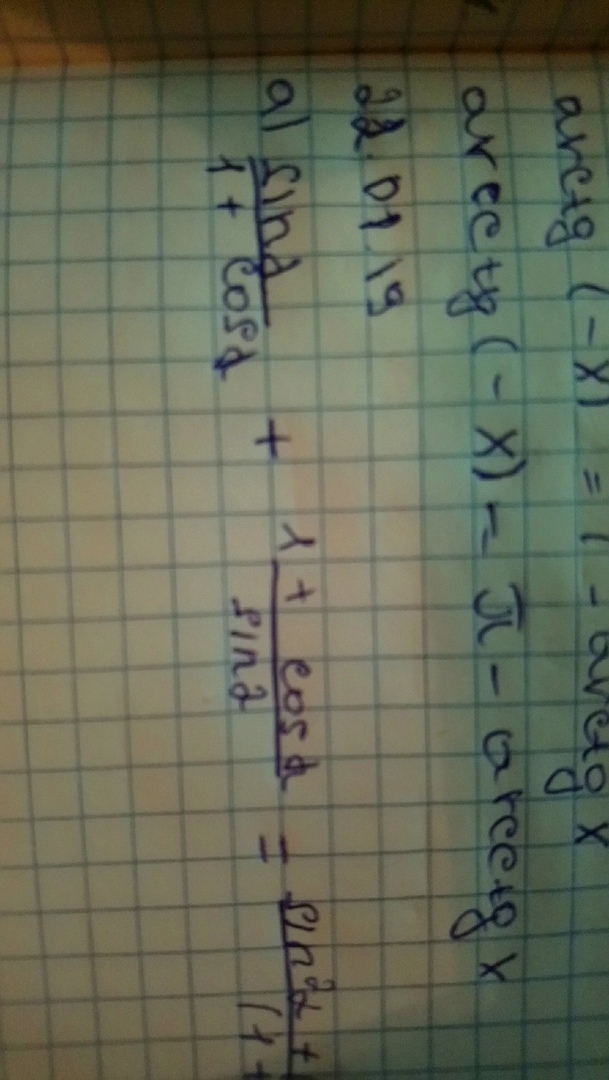 arctg (-x) = - arctg x
arcctg (-x) = π - arcctg x
22.01.19
a) sinα / 1 + cosα + 1 + cosα / sinα = sin²α + / (1 +